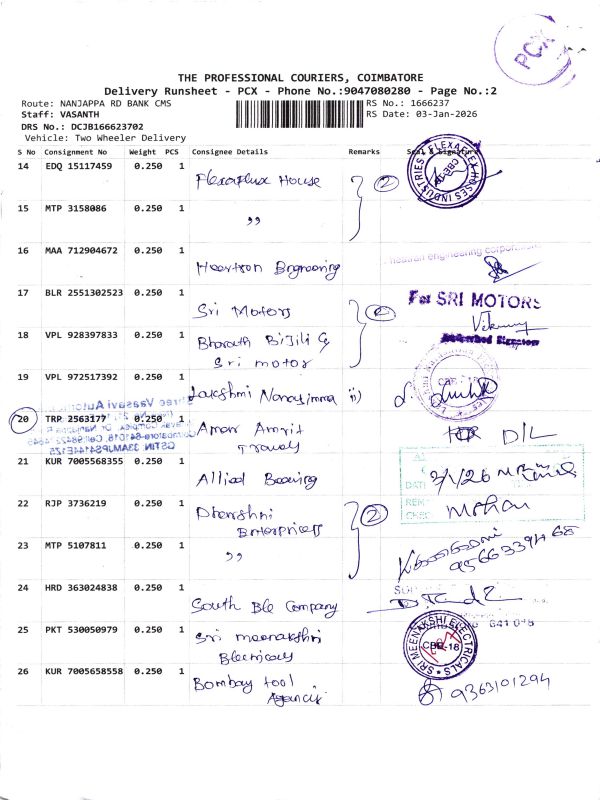 PCX
THE PROFESSIONAL COURIERS, COIMBATORE
Delivery Runsheet - PCX - Phone No.:9047080280 - Page No.:2
Route: NANJAPPA RD BANK CMS
RS No.: 1666237
Staff: VASANTH
RS Date: 03-Jan-2026
DRS No.: DCJB166623702
Vehicle: Two Wheeler Delivery
S No Consignment No Weight PCS Consignee Details Remarks Seal & Signature
14 EDQ 15117459 0.250 1 Flexaflux House 2
15 MTP 3158086 0.250 1 ,,
16 MAA 712904672 0.250 1 Heartson Engineering
17 BLR 2551302523 0.250 1 Sri Motors 2 For SRI MOTORS
18 VPL 928397833 0.250 1 Bharath Bijili &
Sri motor
19 VPL 972517392 0.250 1 Lakshmi Narasimma
20 TRP 2563177 0.250 1 Amar Amrit
Travels D/L
21 KUR 7005568355 0.250 1 Allied Bearing 3/1/26
22 RJP 3736219 0.250 1 Dhanshri
Enterprises 2 Mohan
23 MTP 5107811 0.250 1 ,,
24 HRD 363024838 0.250 1 South Ble Company
25 PKT 530050979 0.250 1 Sri meenakshi
Electricals SRI MEENAKSHI ELECTRICALS CBE-18
26 KUR 7005658558 0.250 1 Bombay tool
Agencies 9363101294